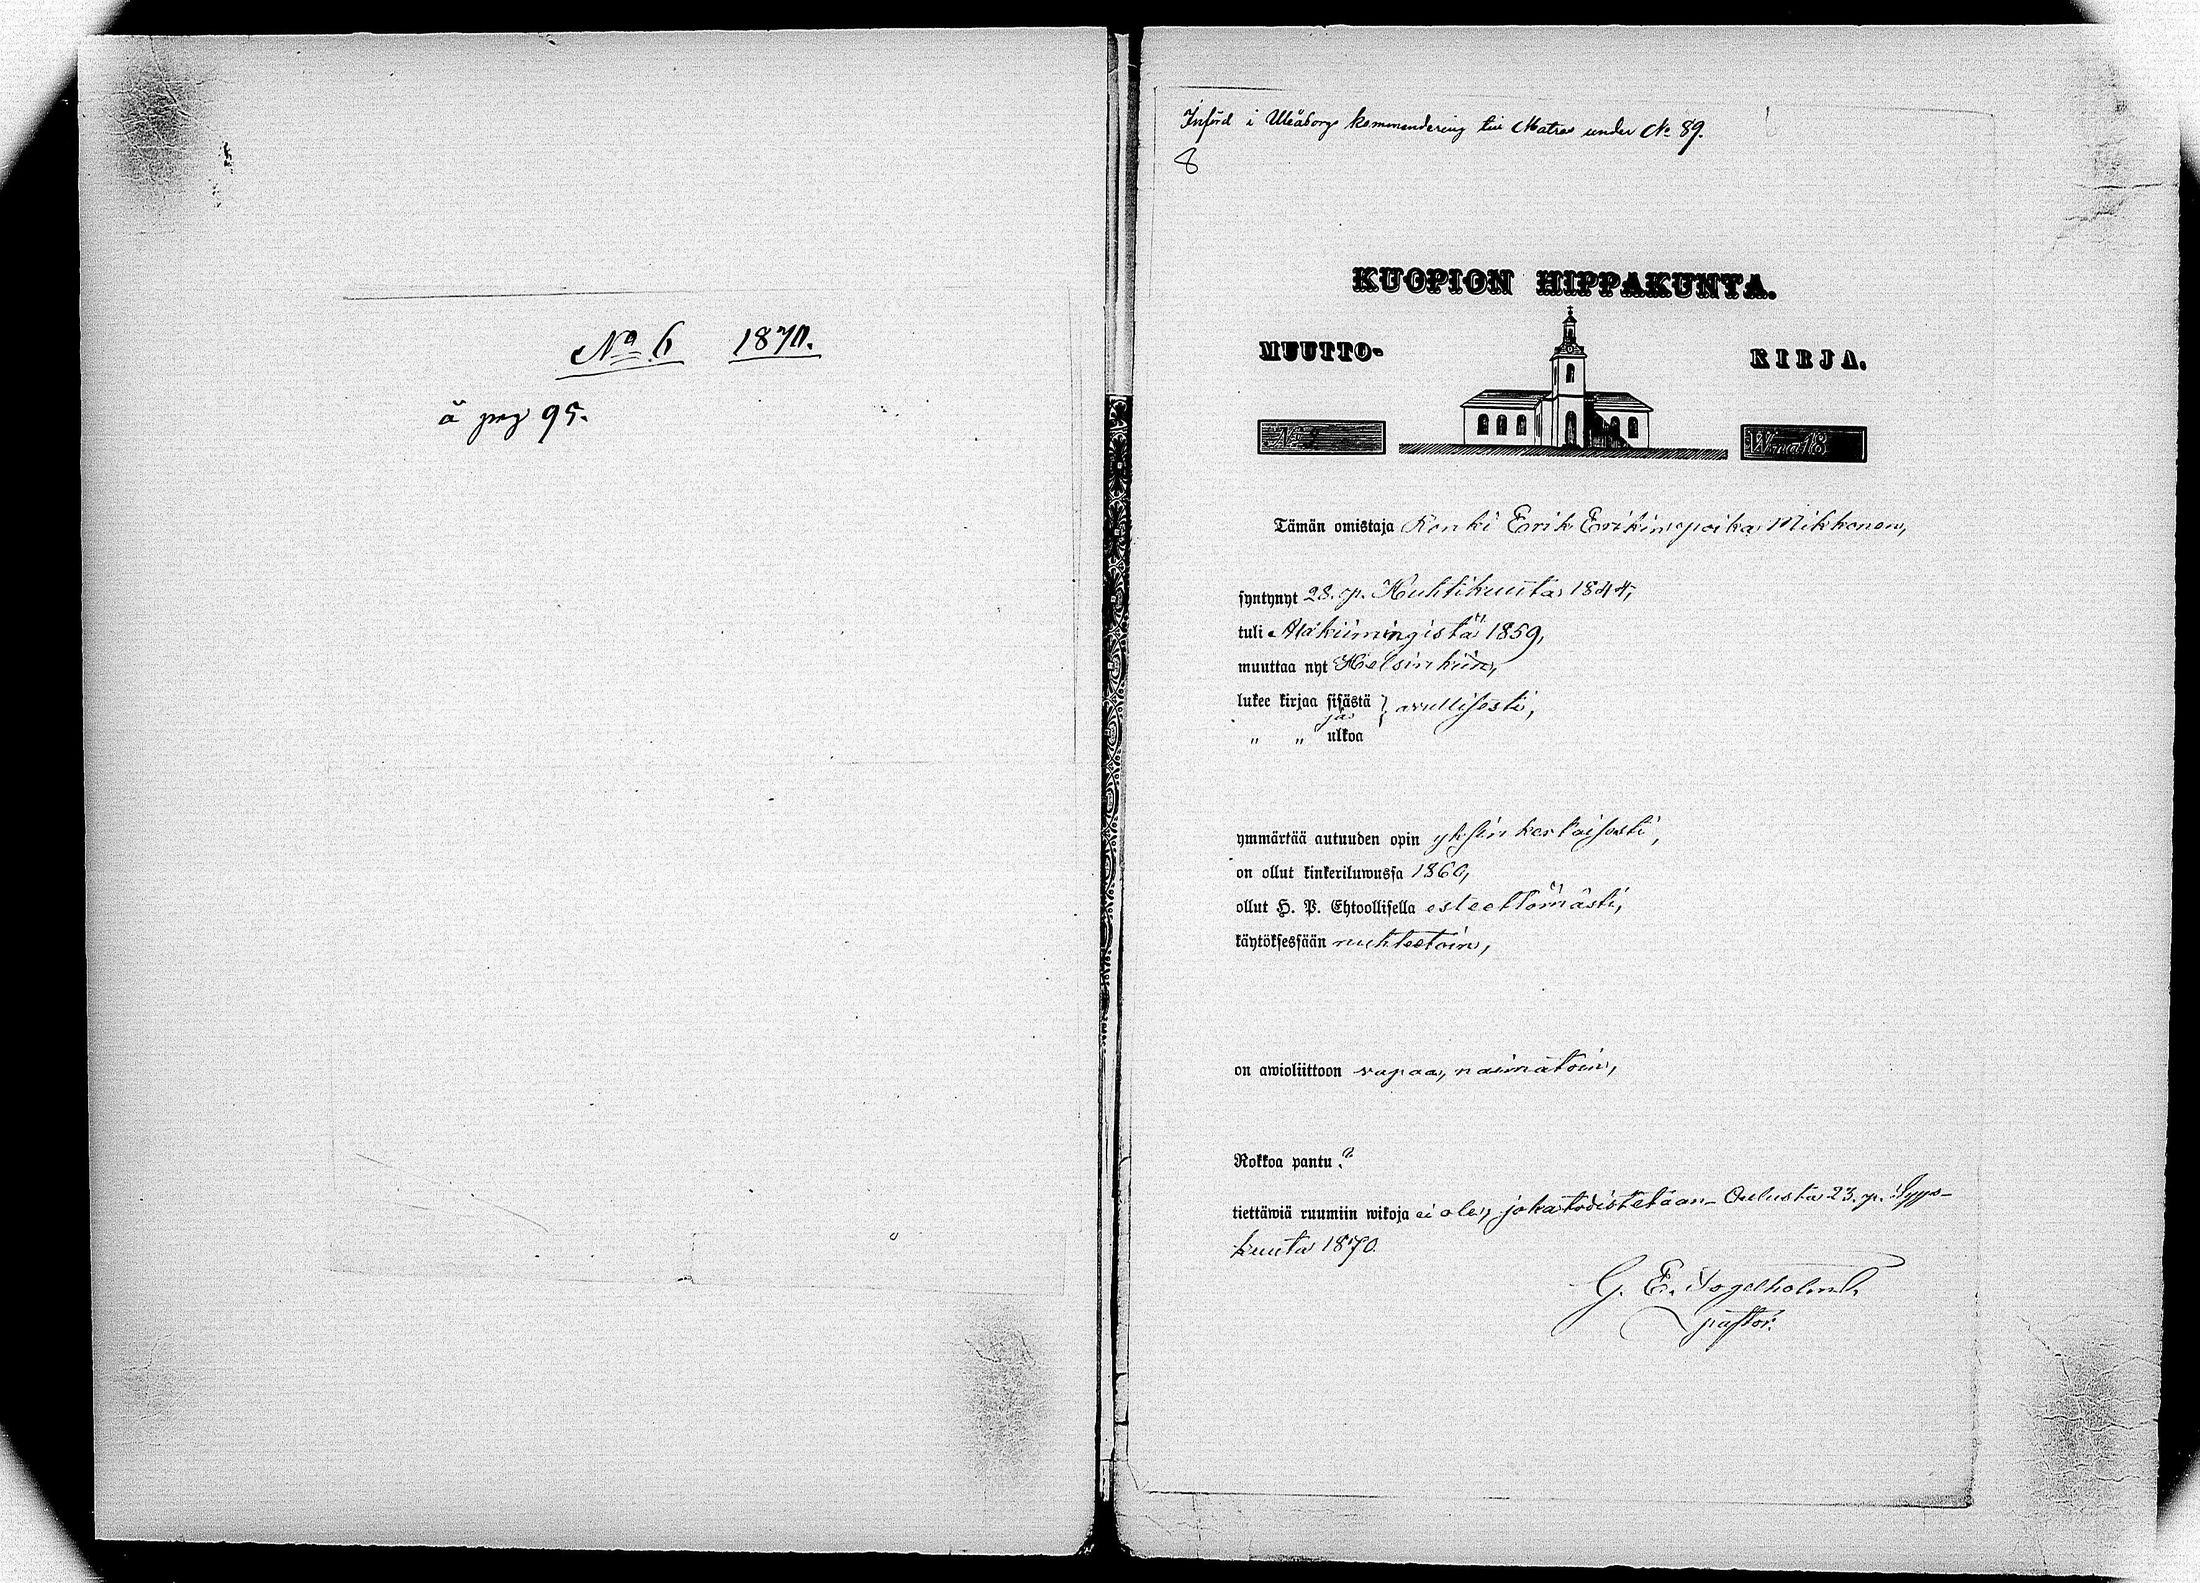 No 6 1870.
å pag 95.
Införd i Uleåborgs kommendering till Matros under No 89.
8
KUOPION HIPPAKUNTA.
MUUTTO- KIRJA.
No Wna 18
Tämän omistaja Renki Erik Erikinpoika Mikkonen,
syntynyt 28. p. Huhtikuuta 1844,
tuli Alakiimingistä 1859,
muuttaa nyt Helsinkiin,
lukee kirjaa sisästä } avullisesti,
ja
" " ulkoa
ymmärtää autuuden opin yksinkertaisesti,
on ollut kinkeriluwussa 1860,
ollut H. P. Ehtoollisella esteettömästi,
käytöksessään nuhteetoin,
on awioliittoon vapaa, naimatoin,
Rokkoa pantu ?
tiettäwiä ruumiin wikoja ei ole, joka todistetaan – Oulusta 23. p. Syys-
kuuta 1870.
G. E. Fogelholm
pastor.